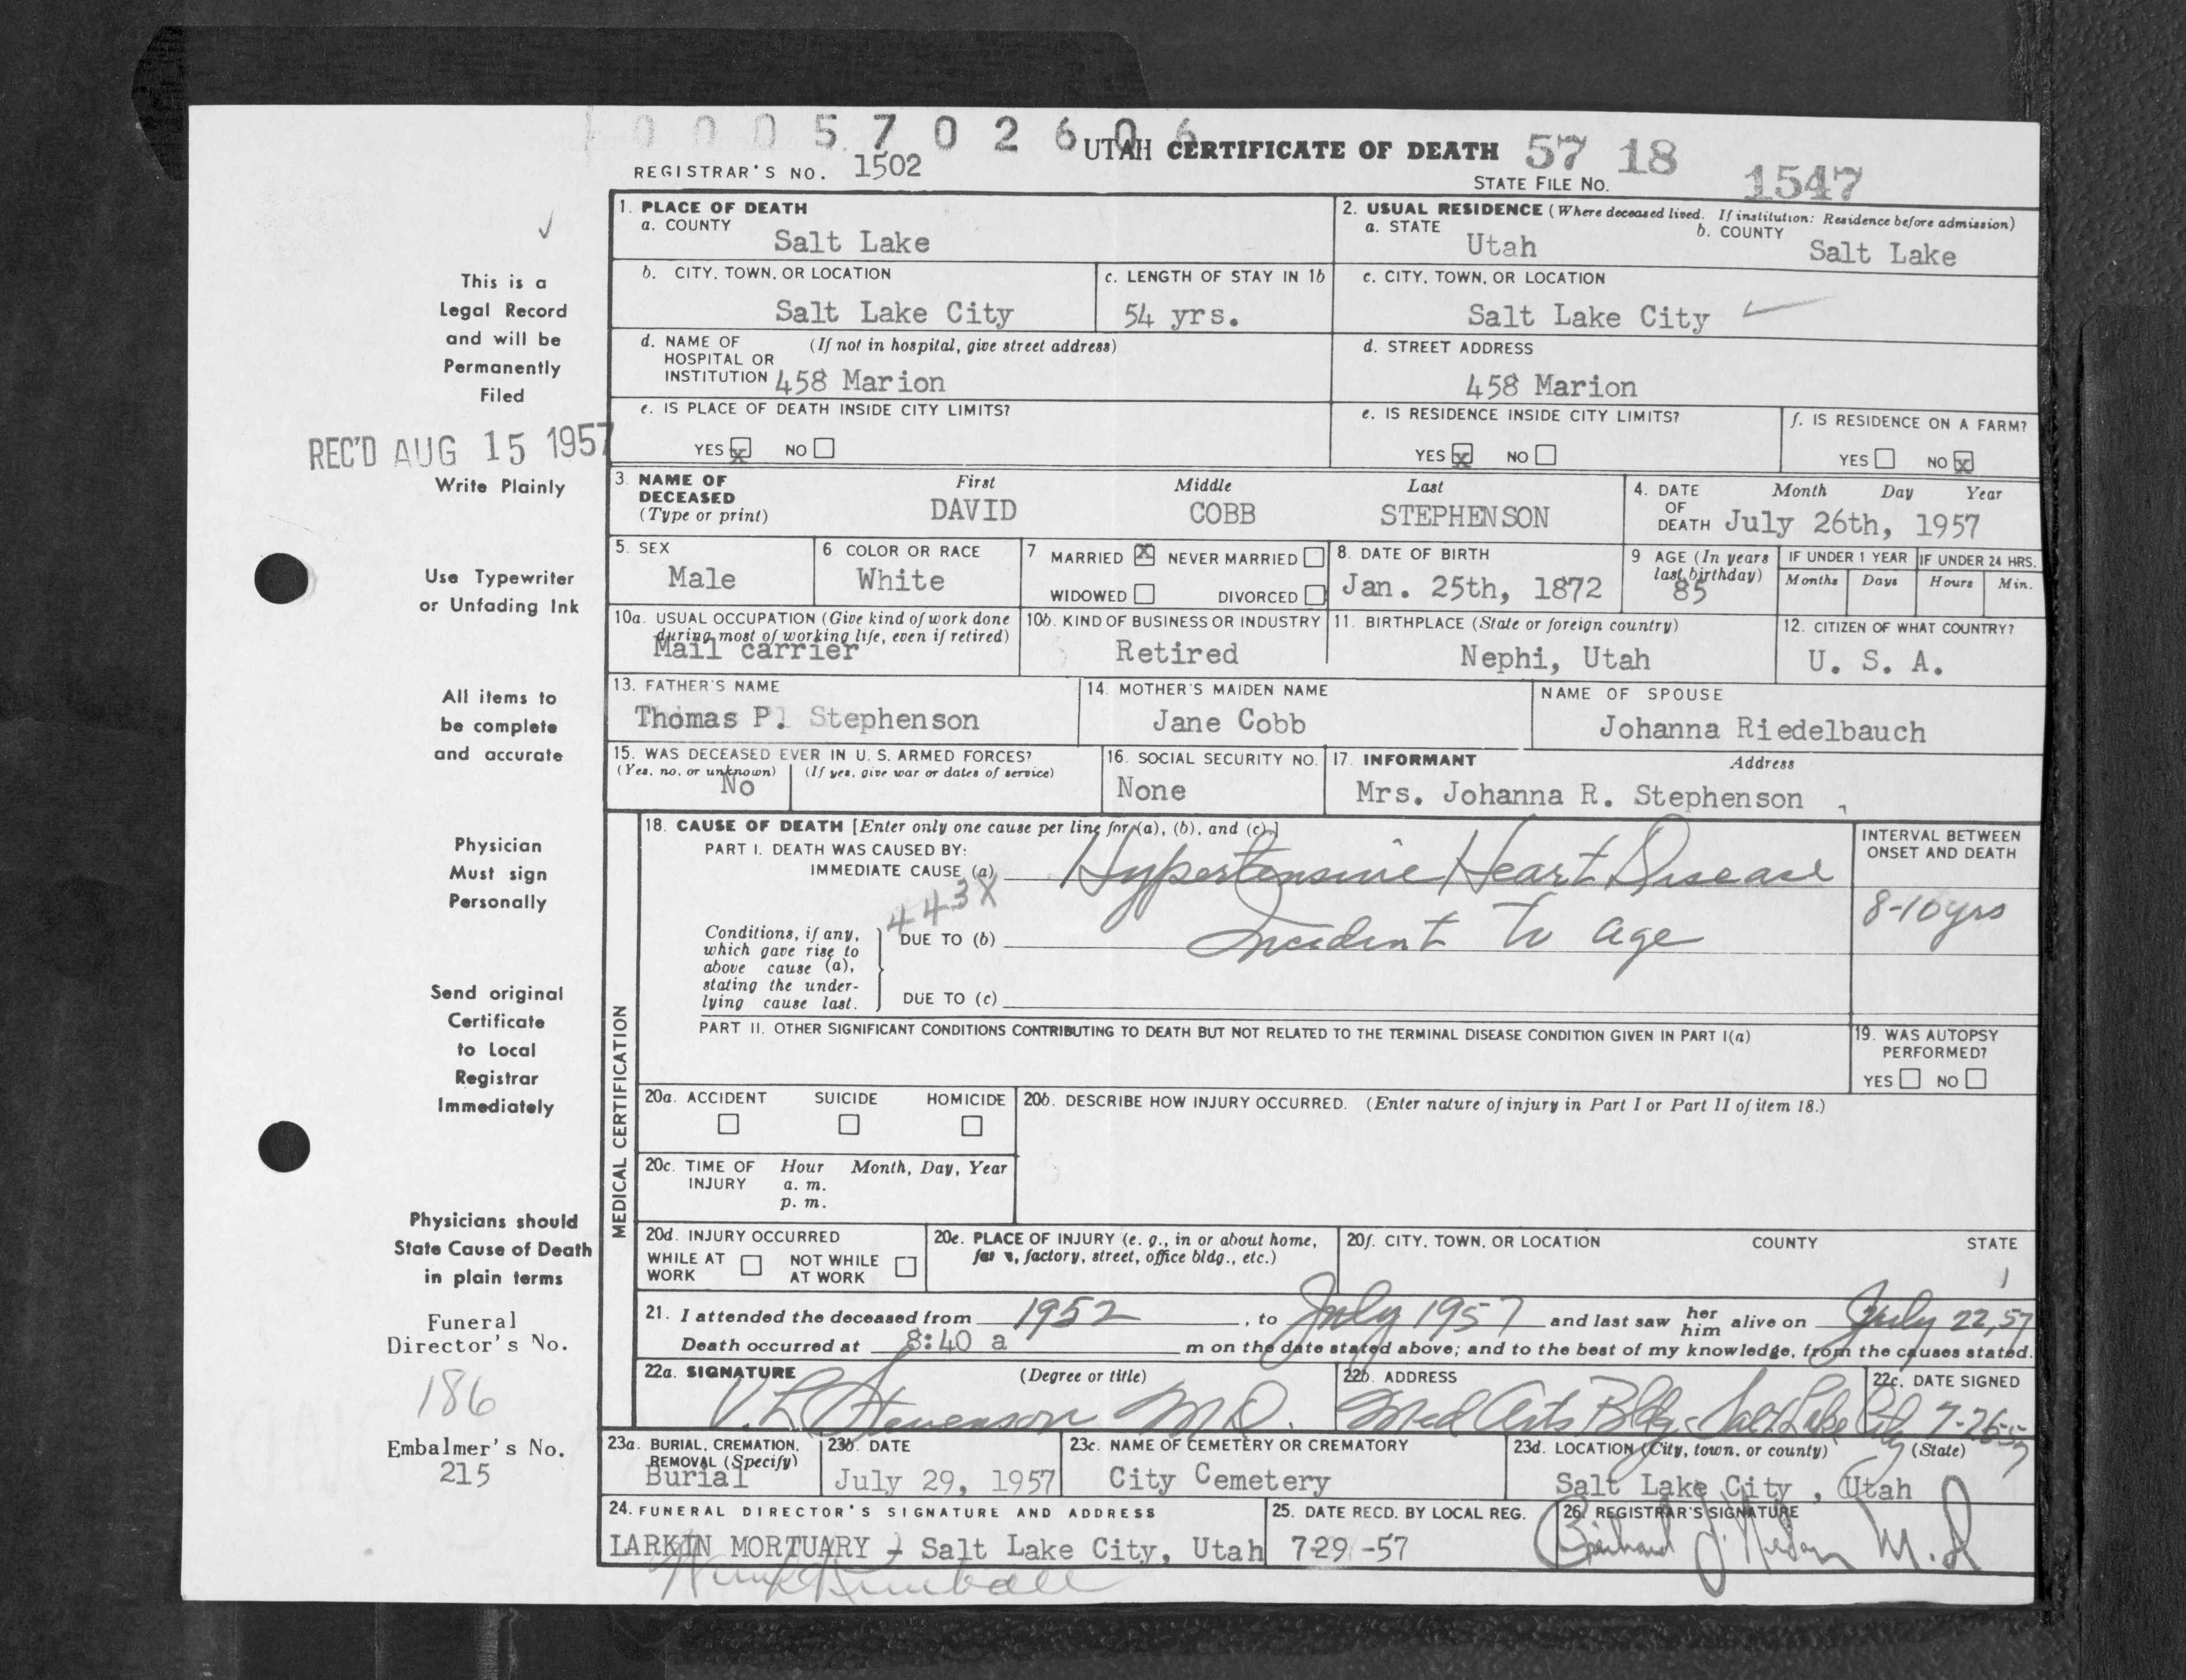 0 0 0 5 7 0 2 6 0 6
UTAH CERTIFICATE OF DEATH 57 18 1547
REGISTRAR'S NO. 1502
STATE FILE NO.
This is a
Legal Record
and will be
Permanently
Filed
REC'D AUG 15 1957
Write Plainly
Use Typewriter
or Unfading Ink
All items to
be complete
and accurate
Physician
Must sign
Personally
Send original
Certificate
to Local
Registrar
Immediately
Physicians should
State Cause of Death
in plain terms
Funeral
Director's No.
186
Embalmer's No.
215
1. PLACE OF DEATH
a. COUNTY
Salt Lake
2. USUAL RESIDENCE (Where deceased lived. If institution: Residence before admission)
a. STATE
Utah
b. COUNTY
Salt Lake
b. CITY, TOWN, OR LOCATION
Salt Lake City
c. LENGTH OF STAY IN 1b
54 yrs.
c. CITY, TOWN, OR LOCATION
Salt Lake City
d. NAME OF (If not in hospital, give street address)
HOSPITAL OR
INSTITUTION 458 Marion
d. STREET ADDRESS
458 Marion
e. IS PLACE OF DEATH INSIDE CITY LIMITS?
YES X NO
e. IS RESIDENCE INSIDE CITY LIMITS?
YES X NO
f. IS RESIDENCE ON A FARM?
YES NO X
3. NAME OF
DECEASED
(Type or print)
First Middle Last
DAVID COBB STEPHENSON
4. DATE
OF
DEATH
Month Day Year
July 26th, 1957
5. SEX
Male
6. COLOR OR RACE
White
7. MARRIED X NEVER MARRIED
WIDOWED DIVORCED
8. DATE OF BIRTH
Jan. 25th, 1872
9. AGE (In years
last birthday)
85
IF UNDER 1 YEAR
Months Days
IF UNDER 24 HRS.
Hours Min.
10a. USUAL OCCUPATION (Give kind of work done
during most of working life, even if retired)
Mail carrier
10b. KIND OF BUSINESS OR INDUSTRY
Retired
11. BIRTHPLACE (State or foreign country)
Nephi, Utah
12. CITIZEN OF WHAT COUNTRY?
U. S. A.
13. FATHER'S NAME
Thomas P. Stephenson
14. MOTHER'S MAIDEN NAME
Jane Cobb
NAME OF SPOUSE
Johanna Riedelbauch
15. WAS DECEASED EVER IN U. S. ARMED FORCES?
(Yes, no, or unknown) (If yes, give war or dates of service)
No
16. SOCIAL SECURITY NO.
None
17. INFORMANT Address
Mrs. Johanna R. Stephenson
MEDICAL CERTIFICATION
18. CAUSE OF DEATH [Enter only one cause per line for (a), (b), and (c).]
PART I. DEATH WAS CAUSED BY:
IMMEDIATE CAUSE (a) Hypertensive Heart Disease
443X
Conditions, if any,
which gave rise to
above cause (a),
stating the under-
lying cause last.
DUE TO (b) Incident to age
DUE TO (c)
INTERVAL BETWEEN
ONSET AND DEATH
8-10 yrs
PART II. OTHER SIGNIFICANT CONDITIONS CONTRIBUTING TO DEATH BUT NOT RELATED TO THE TERMINAL DISEASE CONDITION GIVEN IN PART I(a)
19. WAS AUTOPSY
PERFORMED?
YES NO
20a. ACCIDENT SUICIDE HOMICIDE
20b. DESCRIBE HOW INJURY OCCURRED. (Enter nature of injury in Part I or Part II of item 18.)
20c. TIME OF Hour Month, Day, Year
INJURY a. m.
p. m.
20d. INJURY OCCURRED
WHILE AT NOT WHILE
WORK AT WORK
20e. PLACE OF INJURY (e. g., in or about home,
farm, factory, street, office bldg., etc.)
20f. CITY, TOWN, OR LOCATION COUNTY STATE
21. I attended the deceased from 1952, to July 1957 and last saw her him alive on July 22, 57
Death occurred at 8:40 a m on the date stated above; and to the best of my knowledge, from the causes stated.
22a. SIGNATURE (Degree or title)
V. L. Stevenson M.D.
22b. ADDRESS
Med Arts Bldg Salt Lake City
22c. DATE SIGNED
7-26-57
23a. BURIAL, CREMATION,
REMOVAL (Specify)
Burial
23b. DATE
July 29, 1957
23c. NAME OF CEMETERY OR CREMATORY
City Cemetery
23d. LOCATION (City, town, or county) (State)
Salt Lake City, Utah
24. FUNERAL DIRECTOR'S SIGNATURE AND ADDRESS
LARKIN MORTUARY - Salt Lake City, Utah
25. DATE RECD. BY LOCAL REG.
7-29-57
26. REGISTRAR'S SIGNATURE
M.D
Kimball